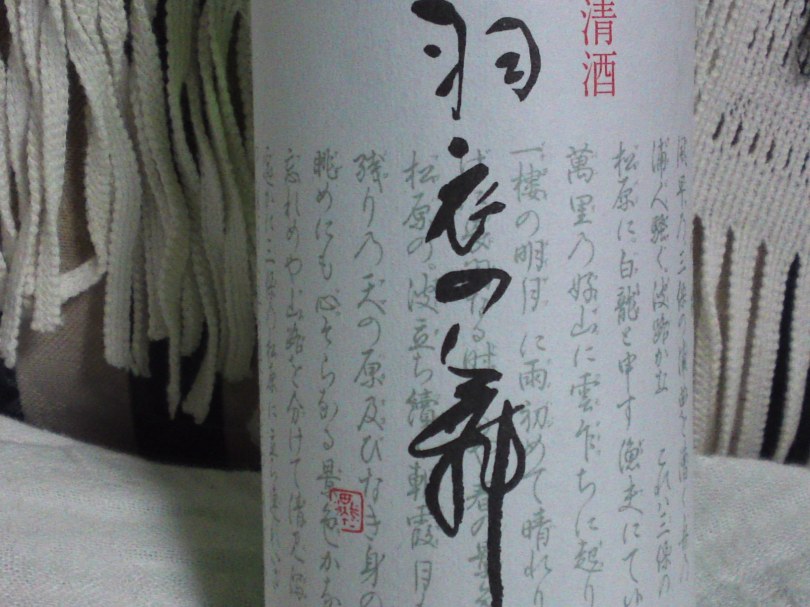 清酒
羽衣の舞
浦人騒ぐ波路かな これは三保の
松原に、白龍と申す漁夫にて
萬里の好山に雲乍ちに起り
一樓の明月に雨初めて晴れり
松原の、波立ち續く朝霞月も
残りの天の原及びなき身の
眺めにも心そらなる景色かな
忘れめや山路を分けて清見潟
遥かに三保の松原に立ち連れいざ